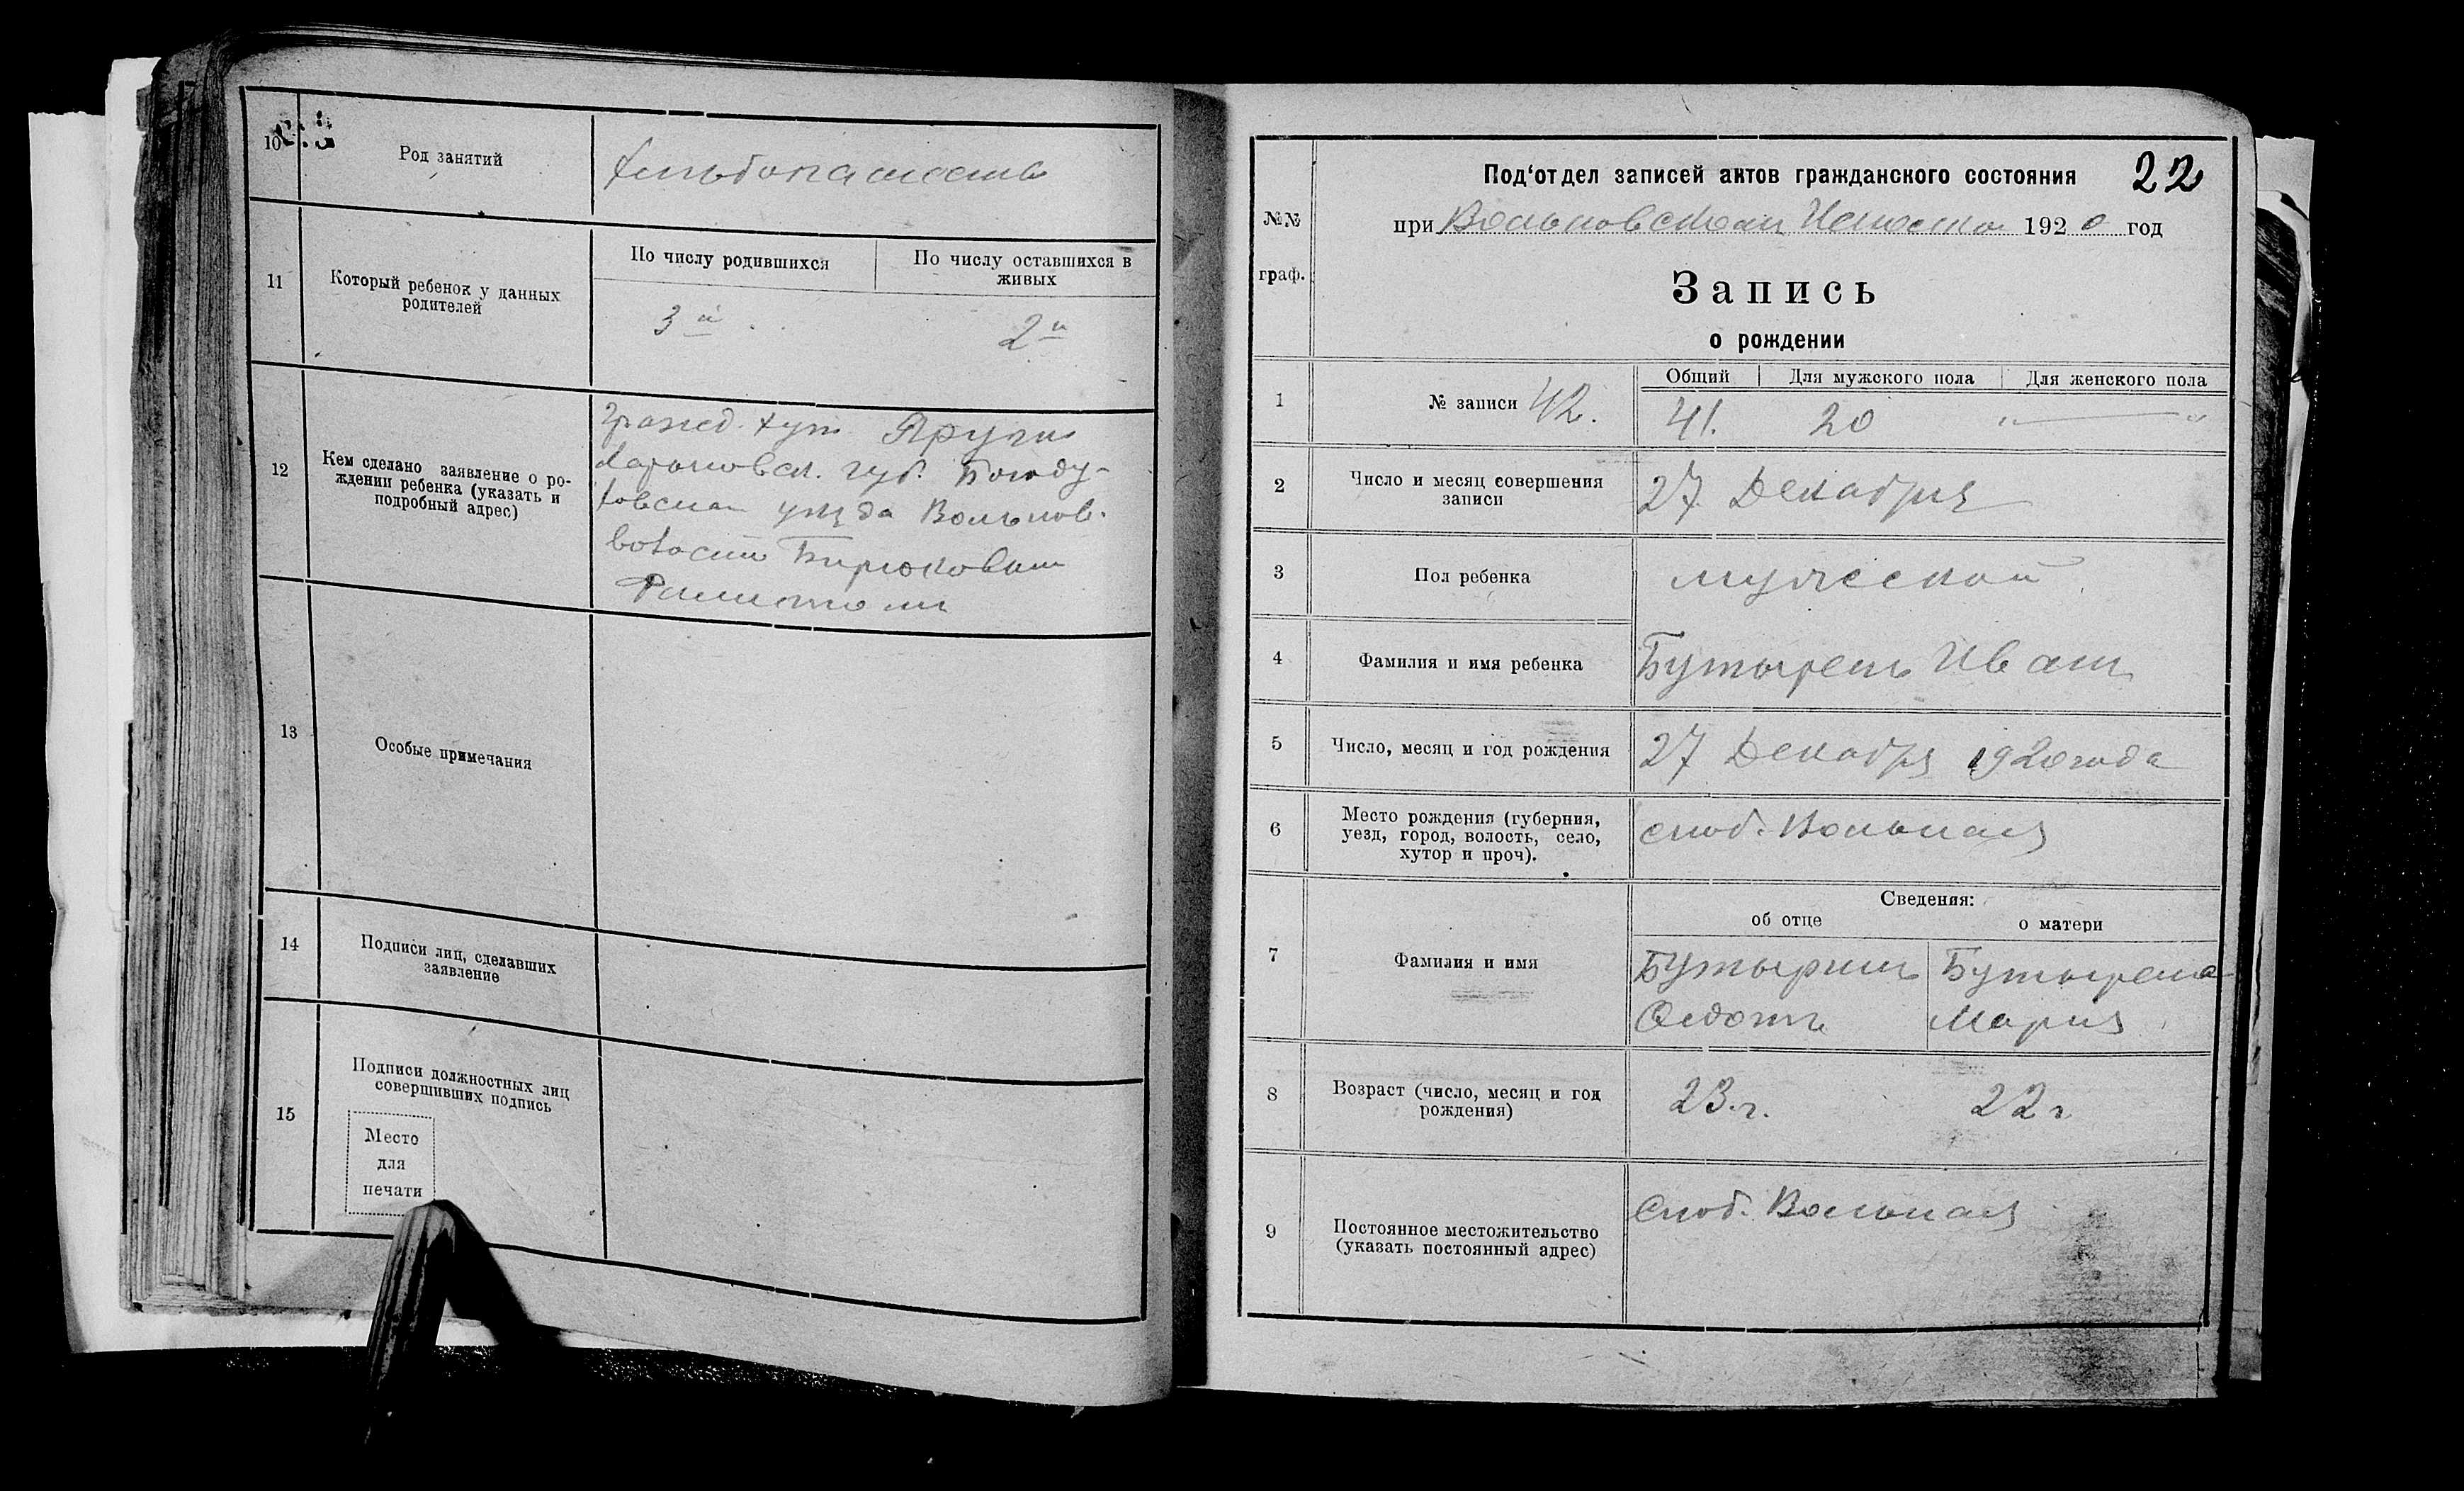 10
Род занятий
хлебопашество
11
Который ребенок у данных
родителей
По числу родившихся
По числу оставшихся в
живых
3й
2й
12
Кем сделано заявление о ро-
ждении ребенка (указать и
подробный адрес)
гражд. хут. Яруги
Харьковск. губ. Богоду-
ховскаго уезда Вольнов.
волости Бирюковым
13
Особые примечания
14
Подписи лиц, сделавших
заявление
15
Подписи должностных лиц
совершивших подпись
Место
для
печати
22
Под‘отдел записей актов гражданского состояния
при Вольновском 1920 год
№№
граф.
Запись
о рождении
1
№ записи 42.
Общий
Для мужского пола
Для женского пола
41. 20 " — "
2
Число и месяц совершения
записи
27 Декабря
3
Пол ребенка
мужеской
4
Фамилия и имя ребенка
Бутырень Иван
5
Число, месяц и год рождения
27 Декабря 1920 года
6
Место рождения (губерния,
уезд, город, волость, село,
хутор и проч).
слоб. Вольная
7
Фамилия и имя
Сведения:
об отце
о матери
Бутырин
Федоть
Бутырена
Мария
8
Возраст (число, месяц и год
рождения)
23.г.
22 г
9
Постоянное местожительство
(указать постоянный адрес)
Слоб. Вольная